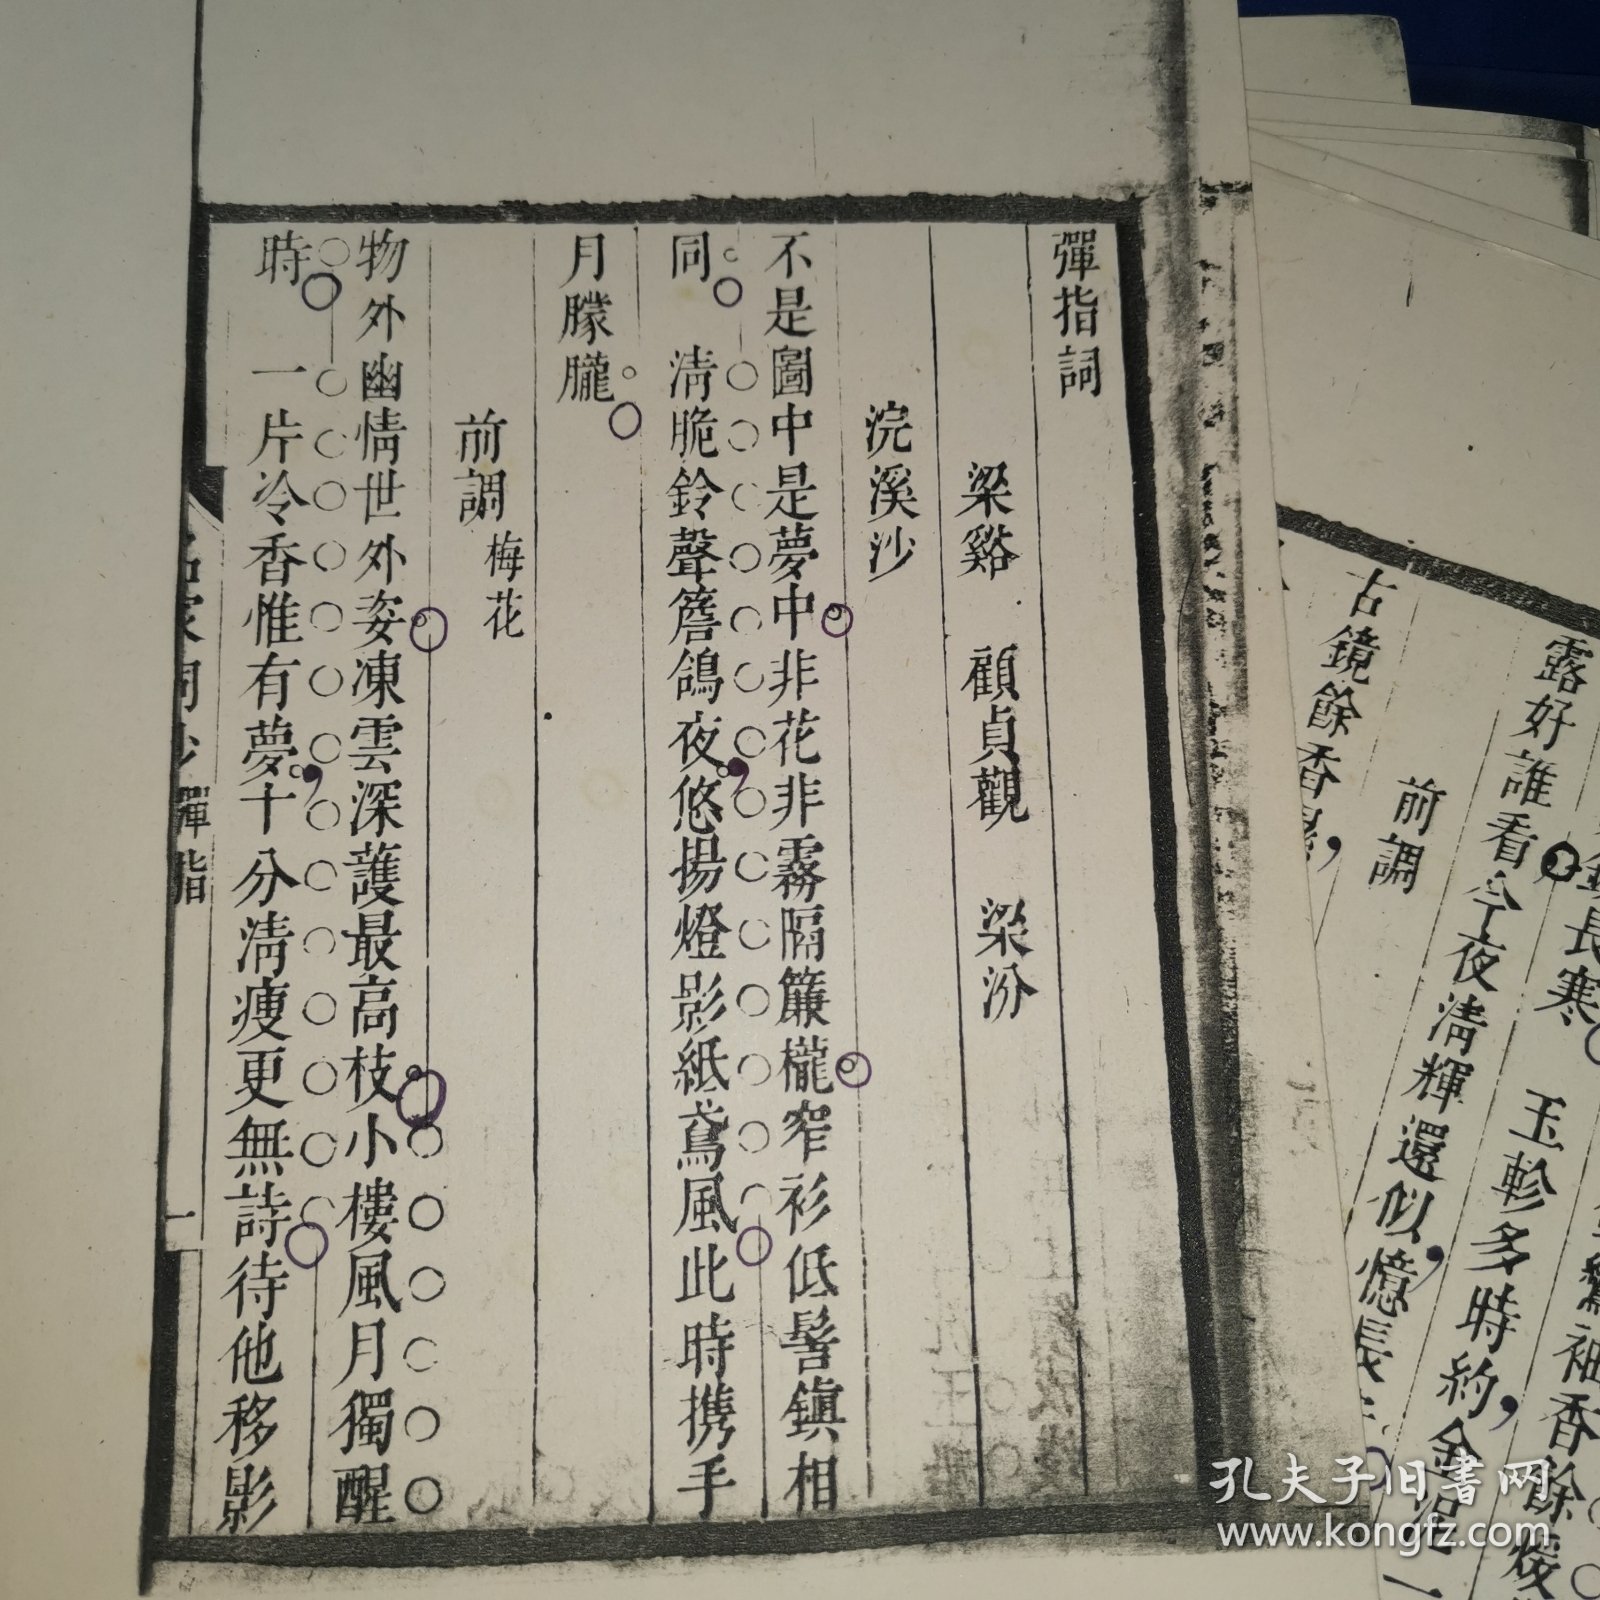 彈指詞
梁谿　顧貞觀　梁汾
浣溪沙
不是圖中是夢中非花非霧隔簾櫳窄衫低髻鎮相
同　清脆鈴聲簷鴿夜悠揚燈影紙鳶風此時携手
月朦朧
前調梅花
物外幽情世外姿凍雲深護最高枝小樓風月獨醒
時　一片冷香惟有夢十分清瘦更無詩待他移影
名家詞鈔 彈指
一
露好誰看今夜清輝還似憶長
前調
古鏡餘香
長寒　玉軫多時約金
袖香餘
孔夫子旧书网
www.kongfz.com